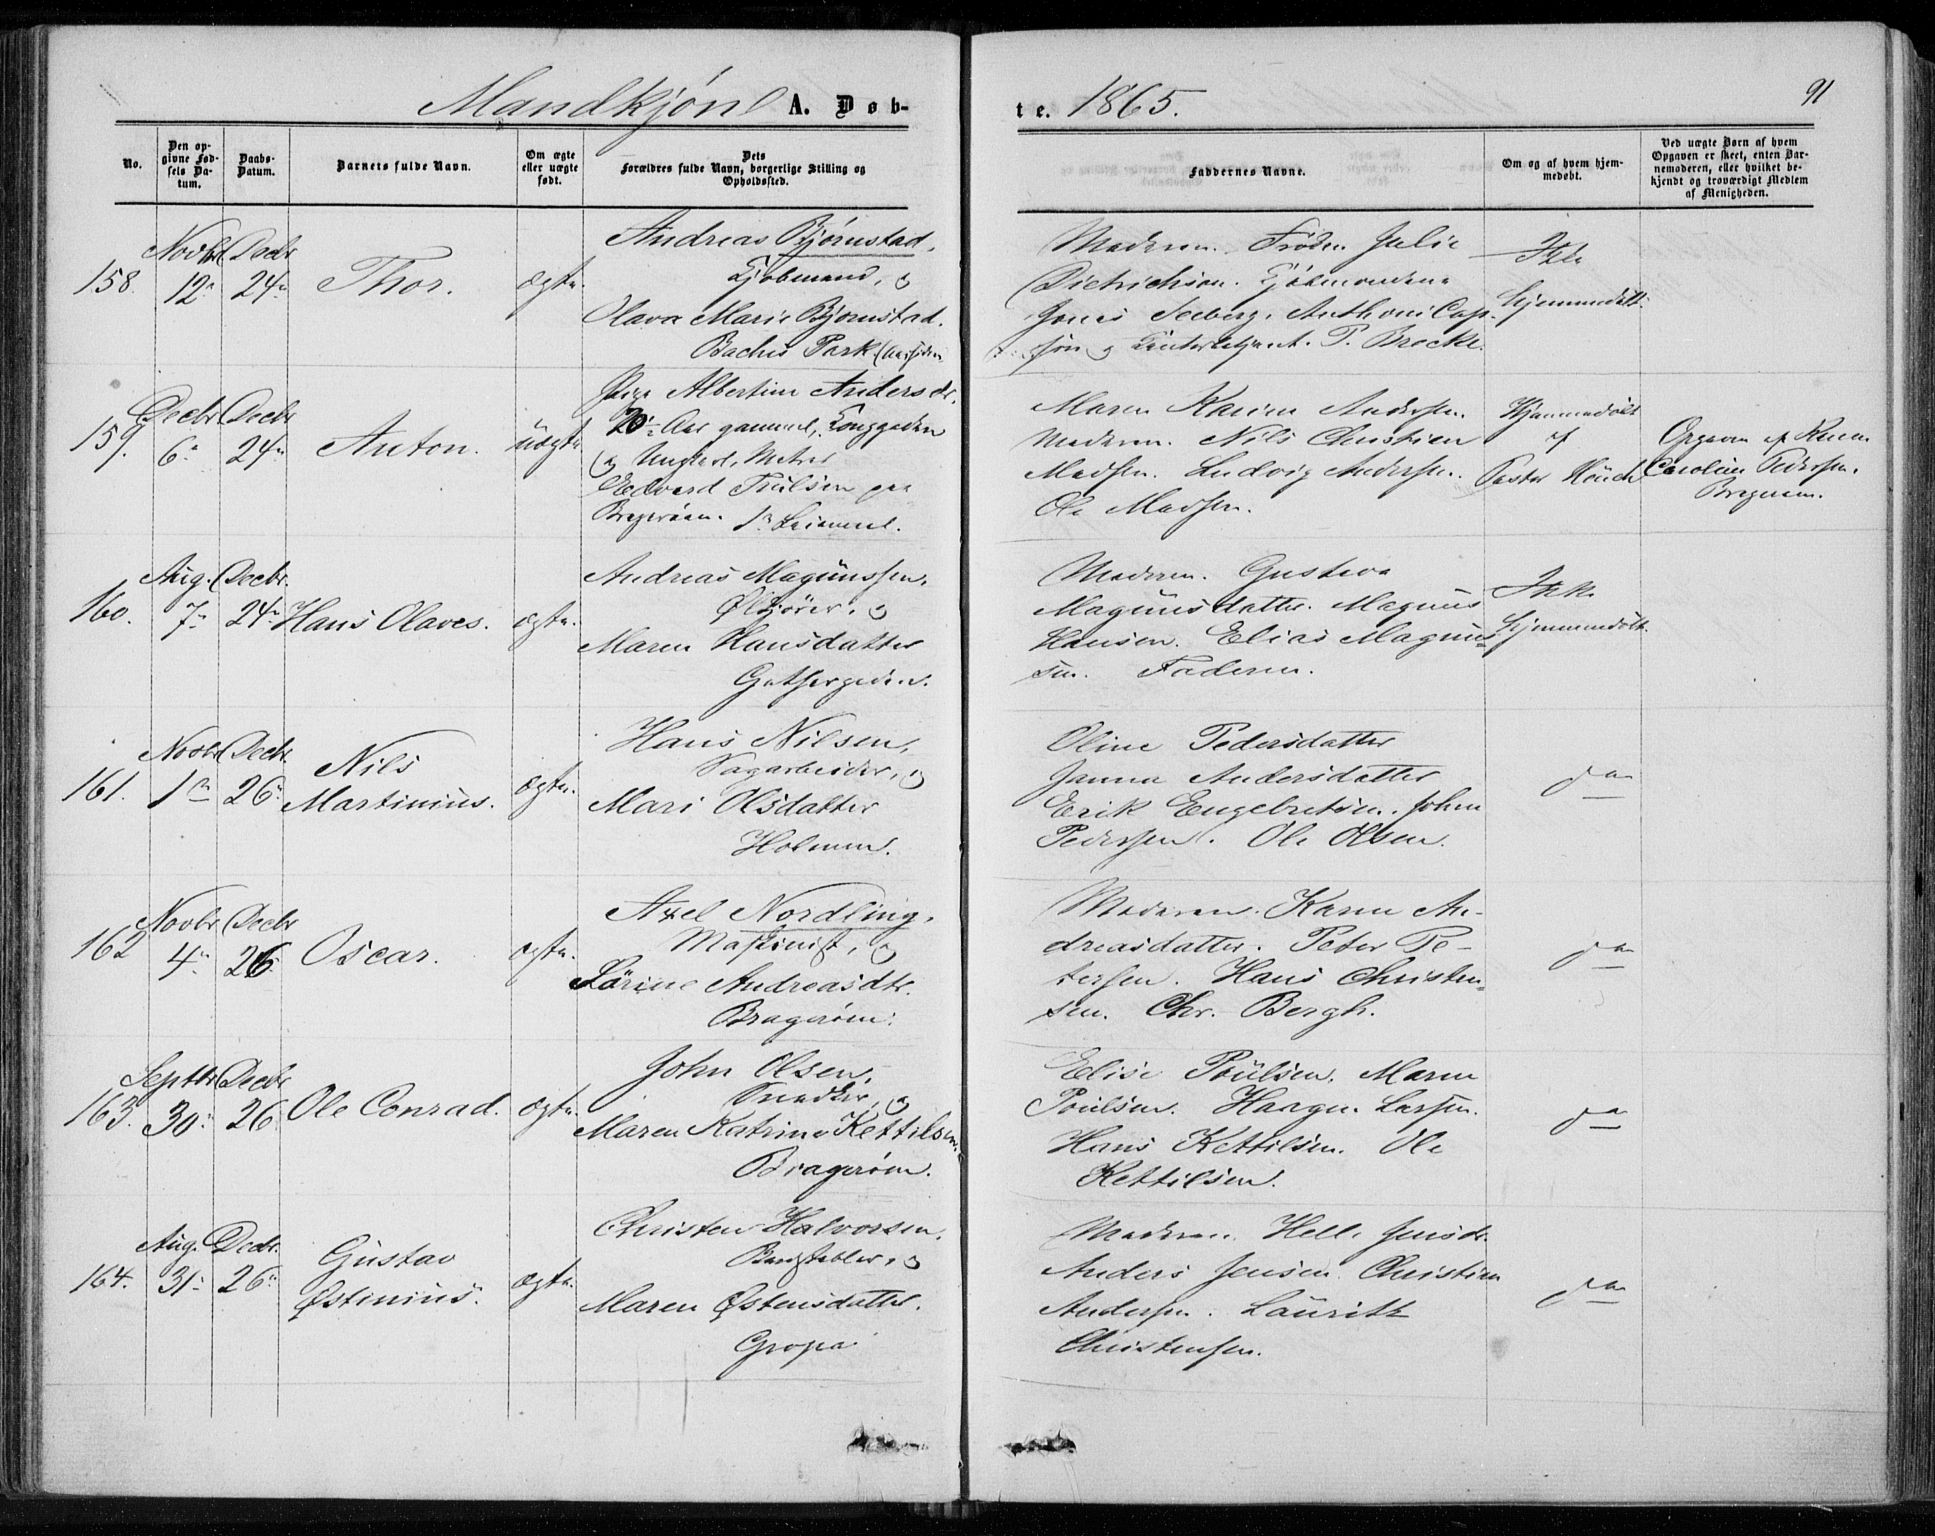 Mandkjøn A. Døb-
te. 1865.
91
No.
Den op-
givne Fød-
sels Da-
tum.
Daabs-
Datum.
Barnets fulde Navn.
Om ægte
eller uægte
født.
Dets
Forældres fulde Navn, borgerlige Stilling og
Opholdssted.
Faddernes Navne.
Om og af hvem hjem-
medøbt.
Ved uægte Børn af hvem
Opgaven er skeet, enten Bar-
nemoderen, eller hvilket be-
kjendt og troværdigt Medlem
af Menigheden.
158.
Novbr
12
Decbr
24
Thor.
ægte.
Andreas Bjørnstad,
Kjøbmand, og
Olava Marie Bjørnstad.
Bachis Park
Moderen. Frøken Julie
Dietrichson. Kjøbmændene
Jones Seeberg, Anthoni Cap-
P. Brocke.
Ikke
hjemmedøbt.
159.
Decbr
6
Decbr
24
Anton.
uægte
Pige Albertine Andersdr.
20 Aar gammel,
og Ungkarl, Matros
Edvard Poulsen paa
Bragerøen. 1ste Leiermaal.
Maren Karine Andersen.
Moderen. Nils Christian
Madsen. Ludvig Andersen.
Ole Madsen.
Hjemmedøbt
af
Pastor Münch
Opgaven af
Caroline Pedersen.
Bragerøen.
160.
Aug.
7
Decbr.
24
Hans Olaves.
ægte.
Andreas Magnussen,
Ølkjører, og
Maren Hansdatter
Moderen. Gustava
Magnusdatter. Magnus
Hansen. Elias Magnus-
sen. Faderen.
Ikke
hjemmedøbt.
161.
Novbr
1
Decbr
26
Nils
Martinius.
ægte.
Hans Nilsen,
Sagarbeider, og
Mari Olsdatter
Holmen.
Oline Pedersdatter
Janna Andersdatter
Erik Engebretsen. Johan
Pedersen. Ole Olsen.
do
162
Novbr
4
Decbr
26
Oscar.
ægte.
Axel Nordling,
Maskinist, og
Lørine Andreasdtr.
Bragerøen.
Moderen. Karen An-
dreasdatter. Peter Pe-
tersen. Hans Christen-
sen. Chr. Bergh.
do
163.
Septbr
30
Decbr
26
Ole Conrad.
ægte.
John Olsen,
Snedker, og
Maren Katrine Kettilsen.
Bragerøen.
Elise Poulsen. Maren
Poulsen. Haagen Larsen.
Hans Kettilsen. Ole
Kettilsen.
do
164.
Aug.
31
Decbr.
26
Gustav
Østinius.
ægte.
Christen Halvorsen,
Bordstabler, og
Maren Østensdatter.
Gropa
Moderen. Helle Jensdr.
Anders Jensen. Christian
Andersen. Lauritz
Christensen.
do